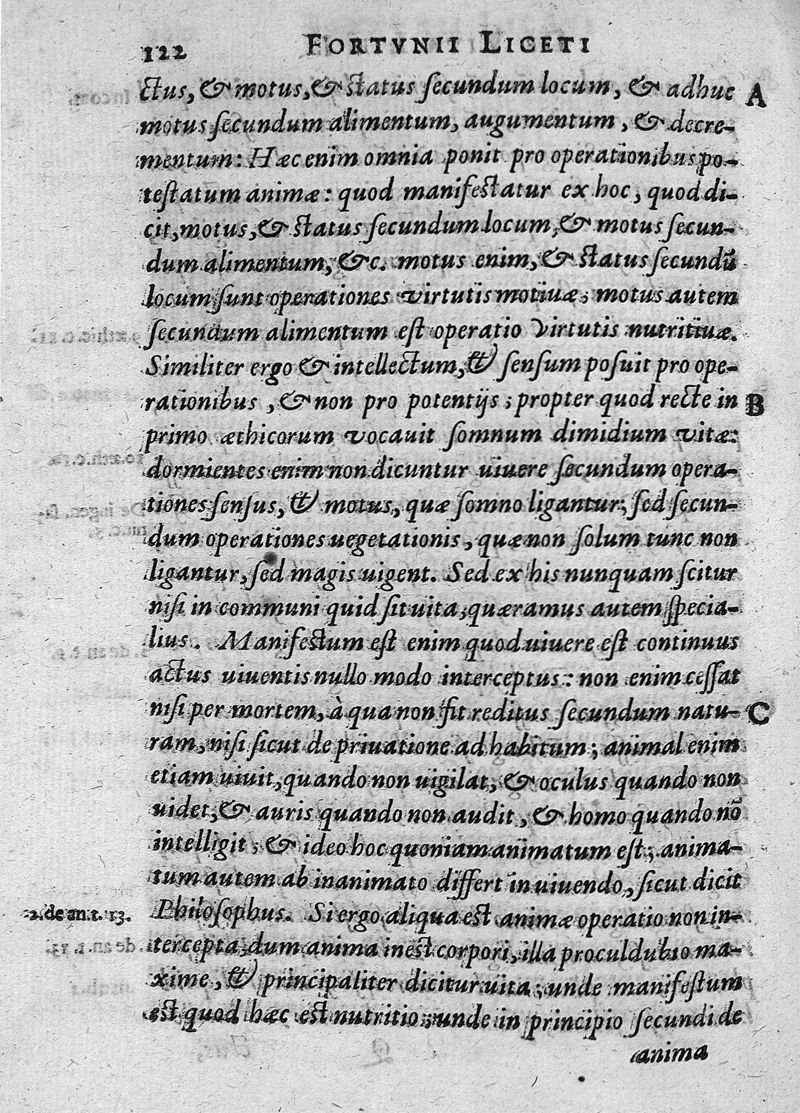 122 FORTVNII LICETI
ctus, & motus, & status secundum locum, & adhuc A
motus secundum alimentum, augumentum, & decre-
mentum: Hæc enim omnia ponit pro operationibus po-
testatum animæ: quod manifestatur ex hoc, quod di-
cit, motus, & status secundum locum, & motus secun-
dum alimentum, &c. motus enim, & status secundū
locum sunt operationes virtutis motiuæ; motus autem
secundum alimentum est operatio virtutis nutritiuæ.
Similiter ergo & intellectum, & sensum posuit pro ope-
rationibus, & non pro potentijs; propter quod recte in B
primo æthicorum vocauit somnum dimidium vitæ:
dormientes enim non dicuntur uiuere secundum opera-
tiones sensus, & motus, quæ somno ligantur; sed secun-
dum operationes uegetationis, quæ non solum tunc non
ligantur, sed magis uigent. Sed ex his nunquam scitur
nisi in communi quid sit uita, quæramus autem specia-
lius. Manifestum est enim quod uiuere est continuus
actus uiuentis nullo modo interceptus: non enim cessat
nisi per mortem, à qua non fit reditus secundum natu- C
ram, nisi sicut de priuatione ad habitum; animal enim
etiam uiuit, quando non uigilat, & oculus quando non
uidet, & auris quando non audit, & homo quando nō
intelligit, & ideo hoc quoniam animatum est; anima-
tum autem ab inanimato differt in uiuendo, sicut dicit
2. de an. t. 13. Philosophus. Si ergo aliqua est animæ operatio non in-
tercepta, dum anima inest corpori, illa proculdubio ma-
xime, & principaliter dicitur uita; unde manifestum
est quod hæc est nutritio; unde in principio secundi de
anima